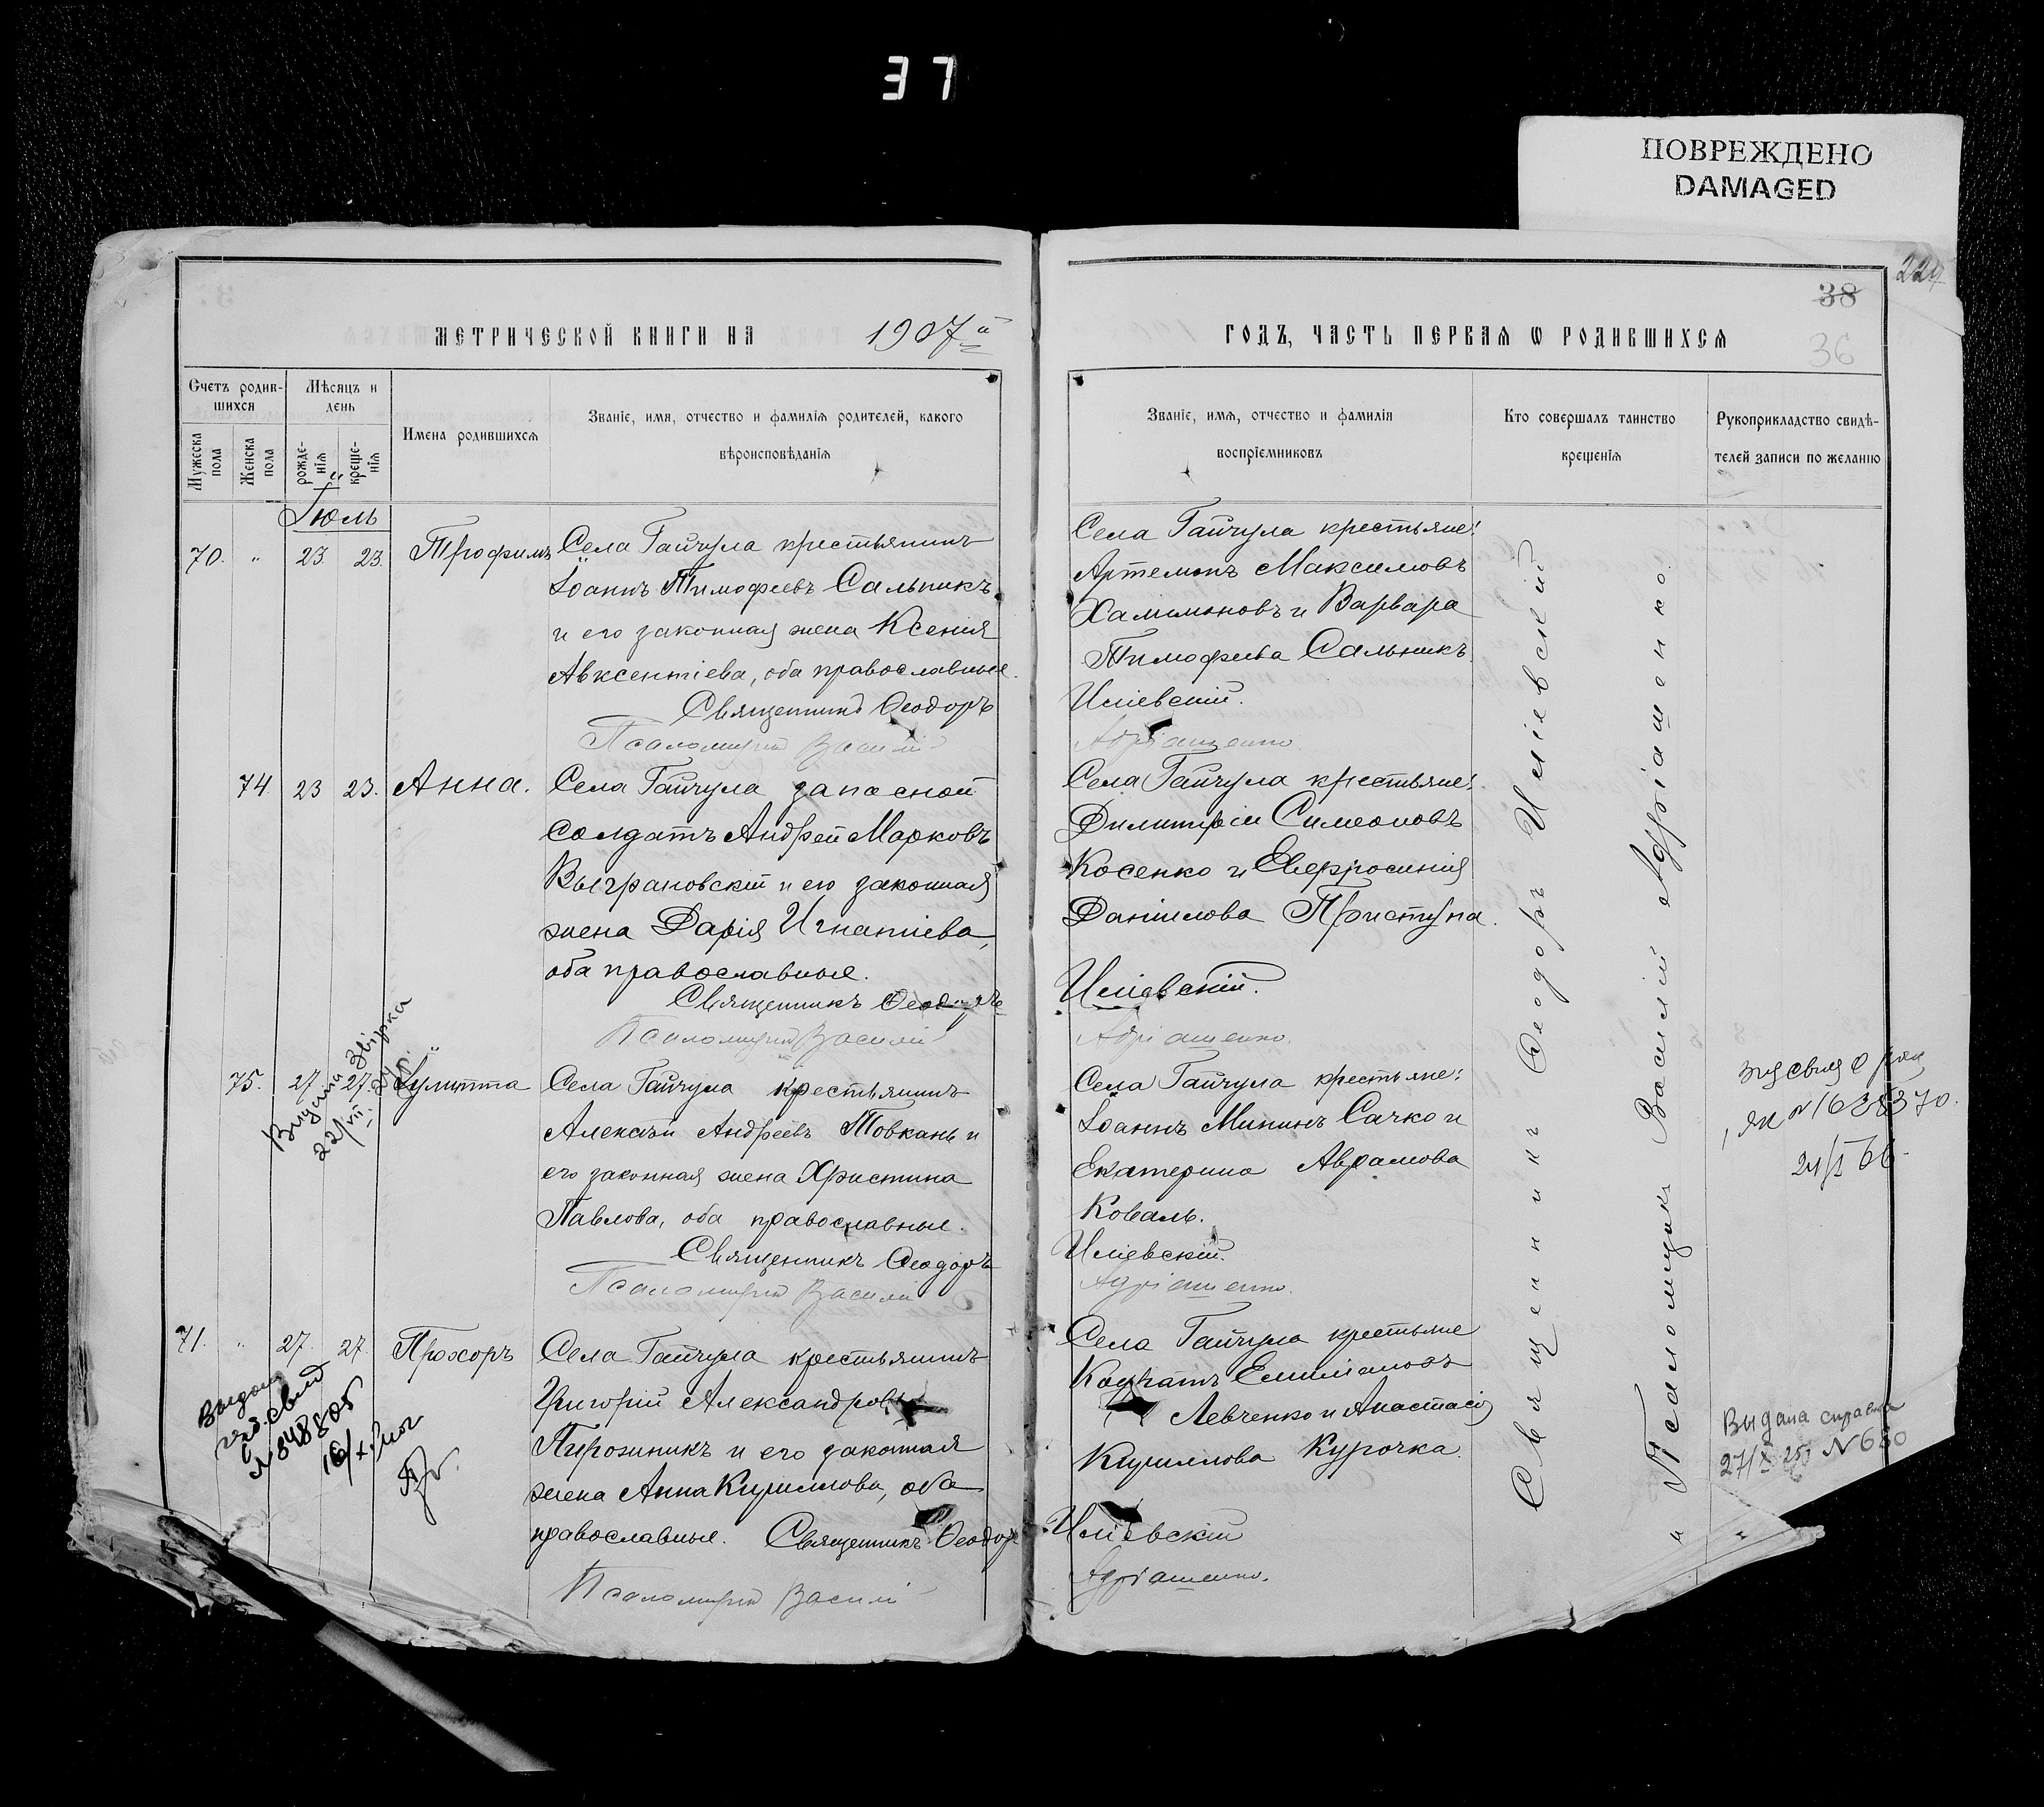 37
ПОВРЕЖДЕНО
DAMAGED
224
38
36
МЕТРИЧЕСКОЙ КНИГИ НА 1907й
ГОДЪ, ЧАСТЬ ПЕРВАЯ Ѡ РОДИВШИХСЯ
Счетъ родив-
шихся
Мѣсяцъ и
день
Мужеска
пола
Женска
пола
рожде-
нія
креще-
нія
Имена родившихся
Званіе, имя, отчество и фамилія родителей, какого
вѣроисповѣданія
Званіе, имя, отчество и фамилія
воспріемниковъ
Кто совершалъ таинство
крещенія
Рукоприкладство свидѣ-
телей записи по желанію
Іюль
70. " 23. 23. Трофимъ
Села Гайчула крестьянинъ
Іоаннъ Тимофеевъ Сальникъ
и его законная жена Ксенія
Авксентіева, оба православные.
Священникъ Ѳеодоръ
Псаломщикъ Василій
Села Гайчула крестьяне:
Артемонъ Максимовъ
Халимоновъ и Варвара
Тимофеева Сальникъ.
Иліевскій.
Адріашенко.
74. 23 23. Анна.
Села Гайчула запасной
солдатъ Андрей Марковъ
Выграновскій и его законная
жена Дарія Игнатіева,
оба православные.
Священникъ Ѳеодоръ
Псаломщикъ Василій
Села Гайчула крестьяне:
Димитрій Симеоновъ
Косенко и Евфросинія
Даніилова Приступа.
Иліевскій.
Адріашенко.
75. 27 27. Іулитта
Видана звірка
22/VII
Села Гайчула крестьянинъ
Алексѣй Андреевъ Товкань и
его законная жена Христина
Павлова, оба православные.
Священникъ Ѳеодоръ
Псаломщикъ Василій
Села Гайчула крестьяне:
Іоаннъ Мининъ Сачко и
Екатерина Аврамова
Коваль.
Иліевскій.
Адріашенко.
71. " 27. 27. Прохоръ
Села Гайчула крестьянинъ
Григорій Александровъ
Пирожникъ и его законная
жена Анна Кириллова, оба
православные. Священникъ Ѳеодоръ
Псаломщикъ Василій
Села Гайчула крестьяне
Кодратъ Емиліановъ
Левченко и Анастасія
Кириллова Курочка.
Иліевскій
Адріашенко.
Священникъ Ѳеодоръ Иліевскій
и Псаломщикъ Василій Адріашенко.
Выдана справка